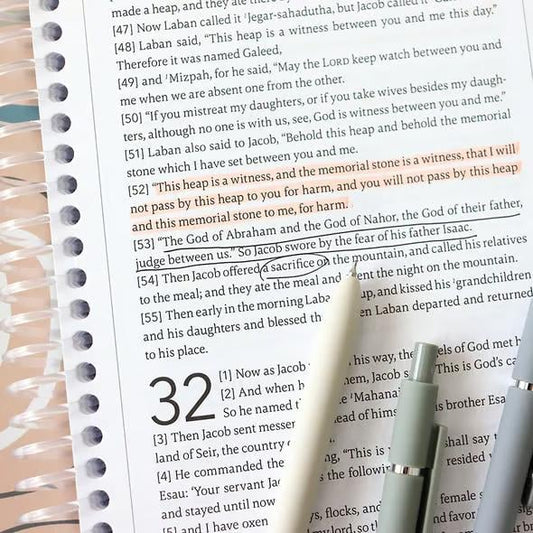 made a heap, and they ate there
[47] Now Laban called it ¹Jegar-sahadutha, but Jacob called it
[48] Laban said, “This heap is a witness between you and me this day.”
Therefore it was named Galeed,
[49] and ¹Mizpah, for he said, “May the LORD keep watch between you and
me when we are absent one from the other.
[50] “If you mistreat my daughters, or if you take wives besides my daugh-
ters, although no one is with us, see, God is witness between you and me.”
[51] Laban also said to Jacob, “Behold this heap and behold the memorial
stone which I have set between you and me.
[52] “This heap is a witness, and the memorial stone is a witness, that I will
not pass by this heap to you for harm, and you will not pass by this heap
and this memorial stone to me, for harm.
[53] “The God of Abraham and the God of Nahor, the God of their father,
judge between us.” So Jacob swore by the fear of his father Isaac.
[54] Then Jacob offered a sacrifice on the mountain, and called his relatives
to the meal; and they ate the meal and spent the night on the mountain.
[55] Then early in the morning Laba up, and kissed his ¹grandchildren
and his daughters and blessed th en Laban departed and returned
to his place.
32 [1] Now as Jacob his way, the els of God met h
[2] And when h hem, Jacob s This is God's ca
So he named t e ¹Mahana
[3] Then Jacob sent messe ead of him is brother Esa
land of Seir, the country
[4] He commanded the ng, “This shall say
Esau: ‘Your servant Ja s the followi resided
and stayed until now
[5] and I have oxen ys, flocks, and female s
my lord, so th nd favor sig